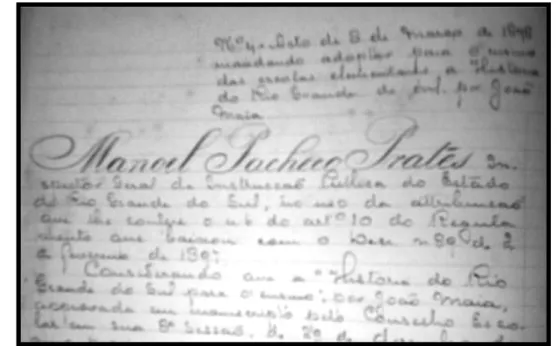 Nº 4 - Acto de 8 de Março de 1898
mandando adoptar para o ensino
das escolas elementares a "Historia
do Rio Grande do Sul, por João
Maia.
Manoel Pacheco Prates, In-
spector Geral da Instrucção Publica do Estado
do Rio Grande do Sul, no uso da attribuição
que lhe confere o n. 6 do artº 10 do Regula
mento que baixou com o Decr. n. 89 de 2
de Fevereiro de 1897
Considerando que a "Historia do Rio
Grande do Sul para o ensino", por João Maia,
approvada em manuscripto pelo Conselho Esco-
lar em sua 8ª sessão, de 20 de